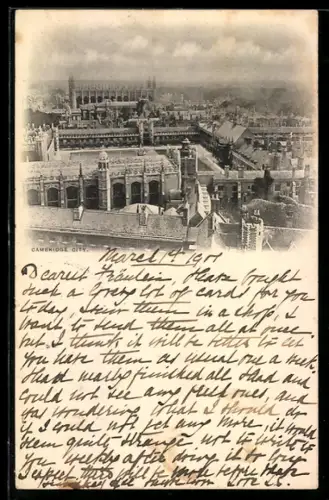 CAMBRIDGE CITY.
March 1st 1901
Dearest Fräulein, I have bought
such a lot of cards for you
to day, I saw them in a shop, I
want to send them all at once
but I think it will be better to let
you have them as usual one a week.
I had really finished all I had and
could not see any fresh ones, and
was wondering what I should do
if I could not get any more, it would
seem quite strange not to write to
you weekly after doing it so long
I expect this will be